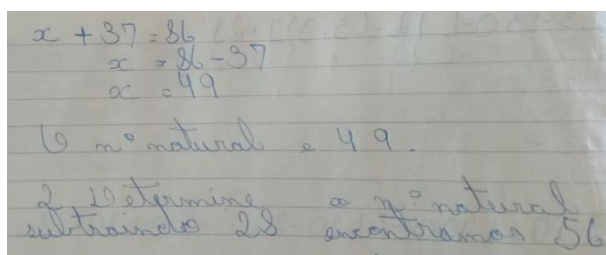 x + 37 = 86
x = 86 - 37
x = 49
O nº natural e 49.
2 Determine o nº natural
subtraindo 28 encontramos 56